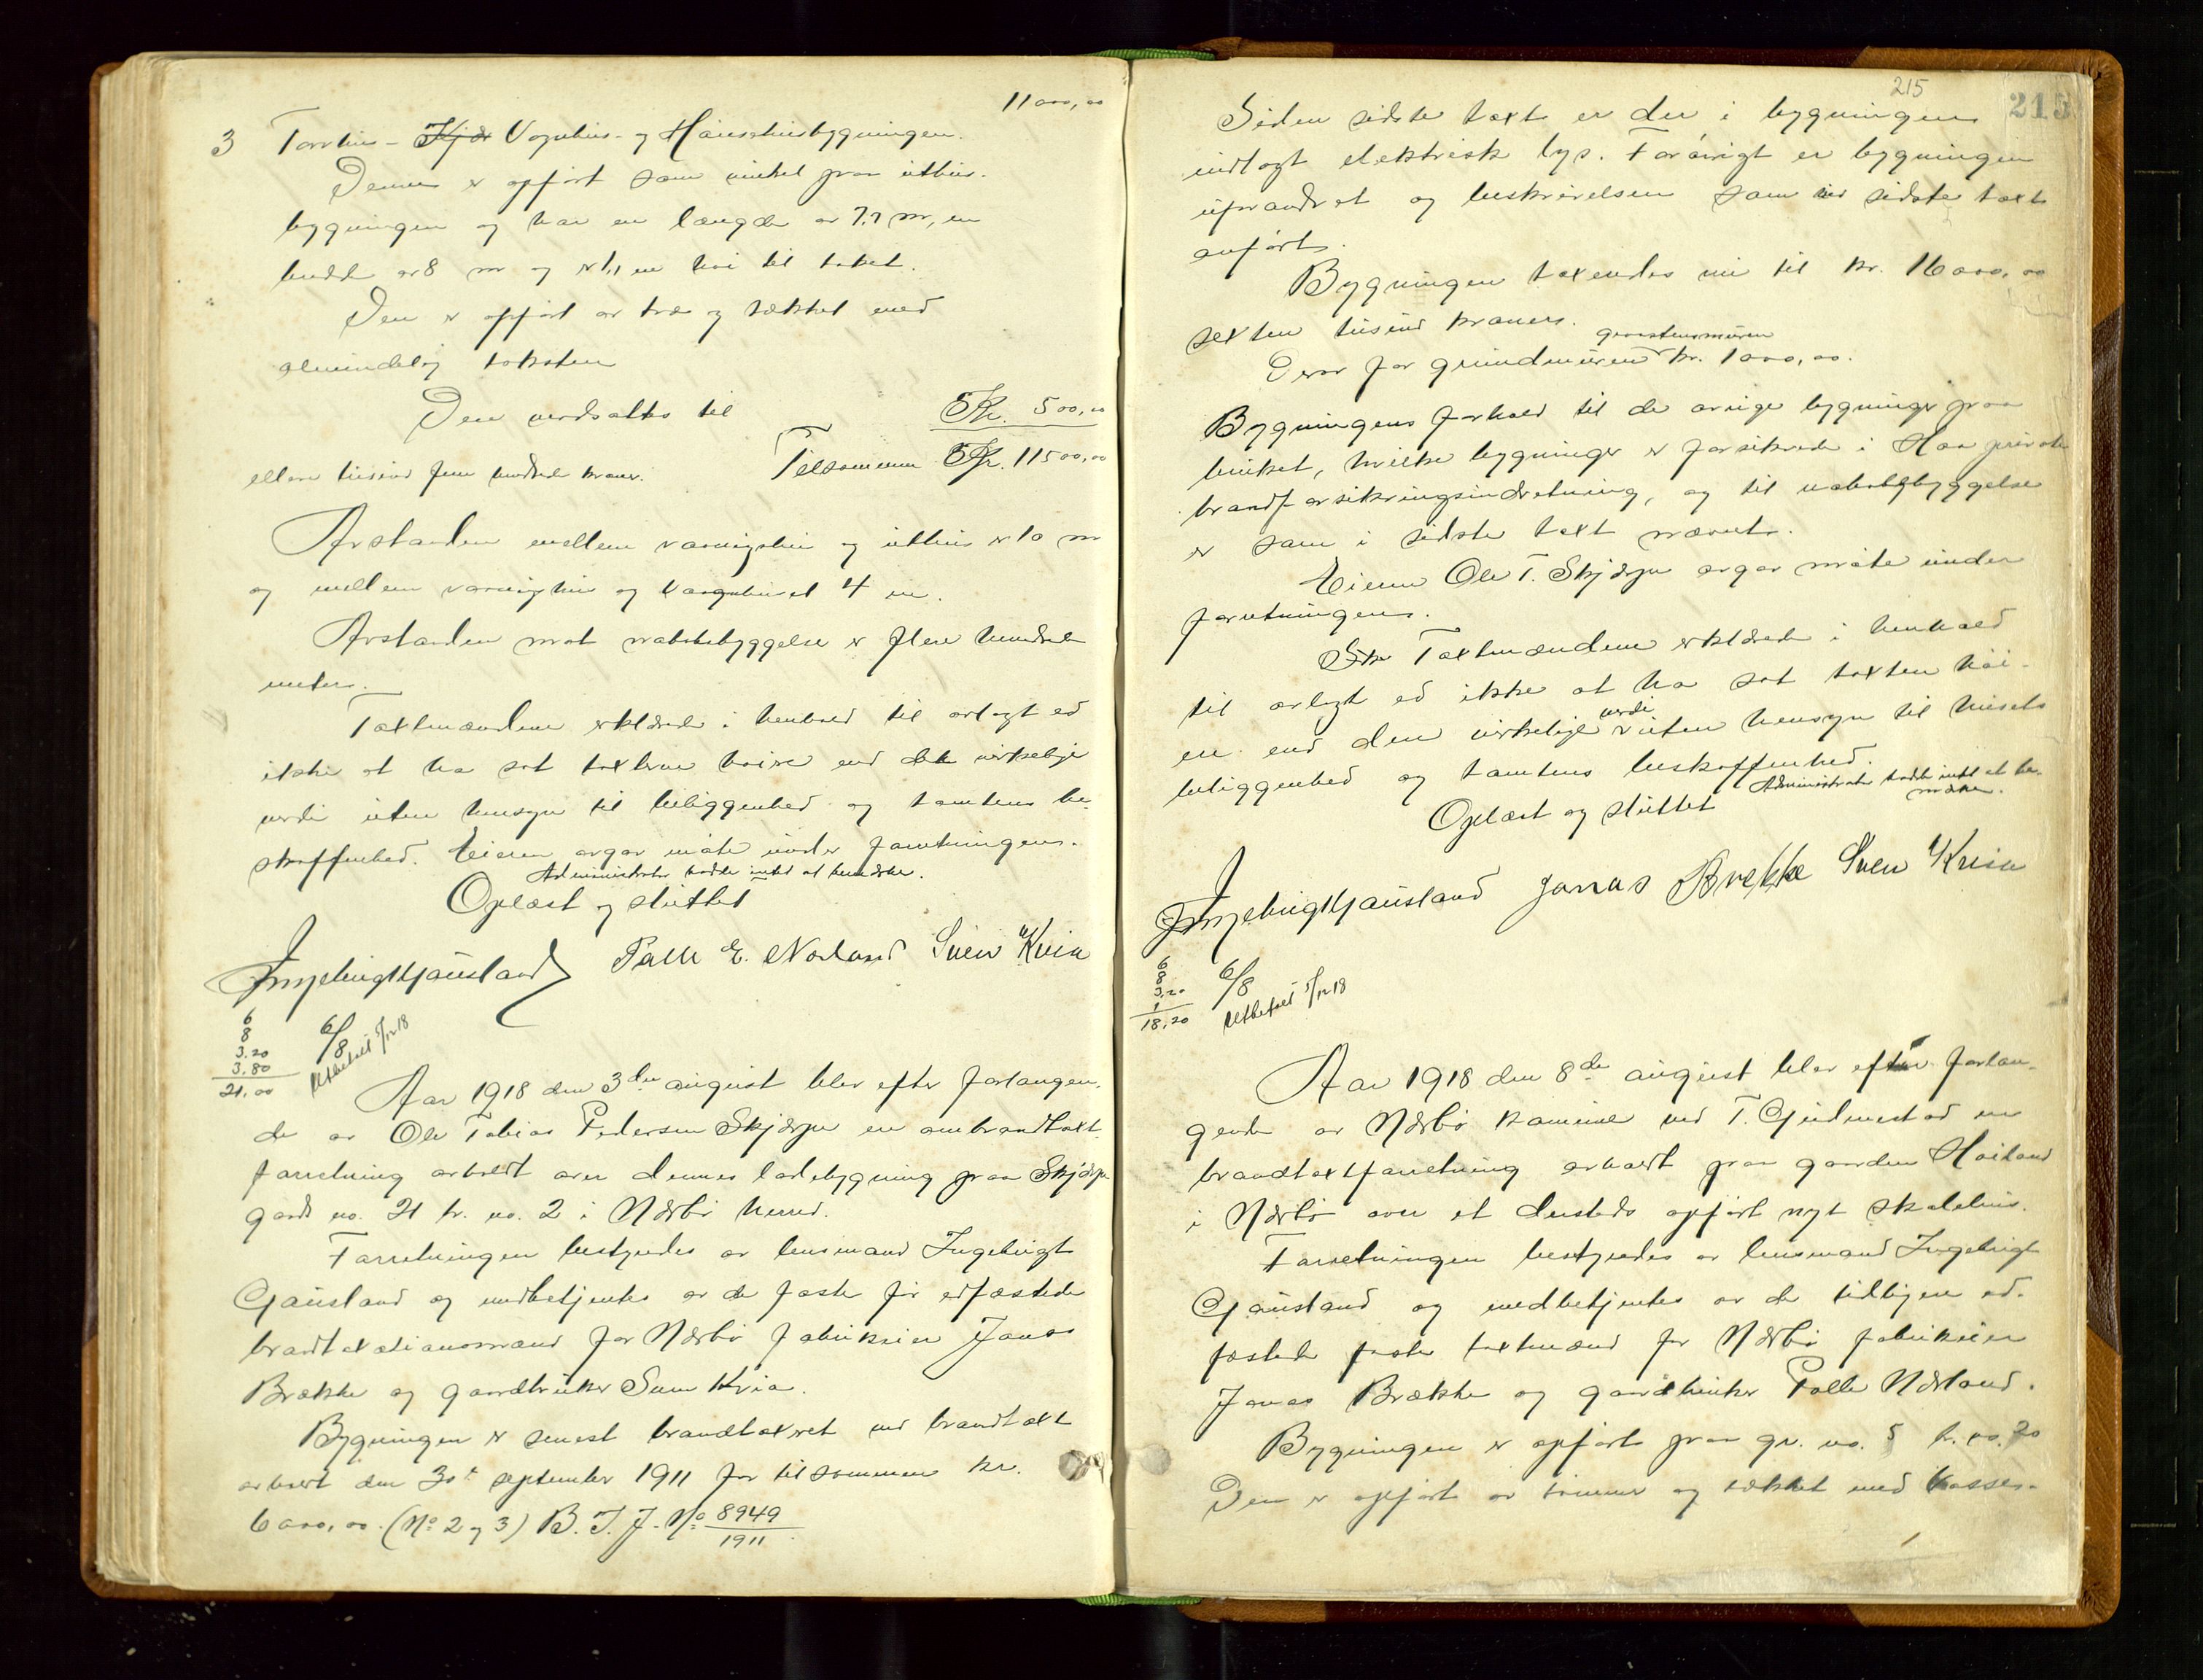 11000,00
3 Torvhus- Kjær Vognhus- og Hønsehusbygningen.
Denne er opført som vinkel paa uthus-
bygningen og har en længde av 7,7 m, en
bredde av 8 m og er 1,1 m høi til taket.
Den er opført av træ og tækket med
almindelig taksten
Den verdsattes til Kr. 500,00
Tilsammen Kr. 11500,00
elleve tusind fem hundrede kroner.
Avstanden mellem vaaningshus og uthus er 10 m
og mellem vaaningshus og vognhuset 4 m.
Avstanden mot nabobebyggelse er flere hundrede
meter.
Taxtmændene erklærede i henhold til avlagt ed
ikke at ha sat taxterne høiere end det virkelige
verdi uten hensyn til beliggenhed og tomtens be-
skaffenhed. Eieren avgav møte under forretningen.
Administrator hadde intet at bemærke.
Oplæst og sluttet
Ingebrigt Gausland Palle E. Nærland Sven Kvia
6
8
3.20
3.80
21,00
6/8
Utbetalt 5/12 18
Aar 1918 den 3die august blev efter forlangen-
de av Ole Tobias Pedersen Skjærpe en ombrandtaxt-
forretning avholdt over dennes ladebygning paa Skjærpe
gards no. 21 br. no. 2 i Nærbø herred.
Forretningen bestyredes av lensmand Ingebrigt
Gausland og medbetjentes av de faste før edfæstede
brandtaxationsmænd for Nærbø fabrikeier Jonas
Brække og gaardbruker Sven Kvia.
Bygningen er senest brandtaxeret ved brandtaxt
avholdt den 30te september 1911 for tilsammen kr.
6000,00. (No 2 og 3) B. T. J. No 8949
1911
215
215
Siden sidste taxt er der i bygningen
indlagt elektrisk lys. Forøvrigt er bygningen
uforandret og beskrivelsen som ved sidste taxt
anført.
Bygningen taxeredes nu til kr. 16000,00
sexten tusind kroner.
graastensmuren
Derav for grundmuren kr. 1000,00.
Bygningens forhold til de øvrige bygninger paa
bruket, hvilke bygninger er forsikrede i Haa private
brandforsikringsindretning, og til nabobebyggelse
er som i sidste taxt nævnt.
Eieren Ole T. Skjærpe avgav møte under
forretningen.
Ske Taxtmændene erklærede i henhold
til avlagt ed ikke at ha sat taxten høi-
verdi
ere end den virkelige uten hensyn til husets
beliggenhed og tomtens beskaffenhed.
Administrator hadde intet at be-
mærke.
Oplæst og sluttet
Ingebrigt Gausland Jonas Brekke Sven Kvia
6
8
3,20
1
18,20
6/8
Utbetalt 5/12 18
Aar 1918 den 8de august blev efter forlan-
gende av Nærbø kommune ved T. Gudmestad en
brandtaxtforretning avholdt paa gaarden Høiland
i Nærbø over et dersteds opført nyt skolehus.
Forretningen bestyredes av lensmand Ingebrigt
Gausland og medbetjentes av de tidligere ed-
fæstede faste taxtmænd for Nærbø fabrikeier
Jonas Brække og gaardbruker Palle Nærland.
Bygningen er opført paa gr. no. 5 br. no. 20
Den er opført av tømmer og tækket med